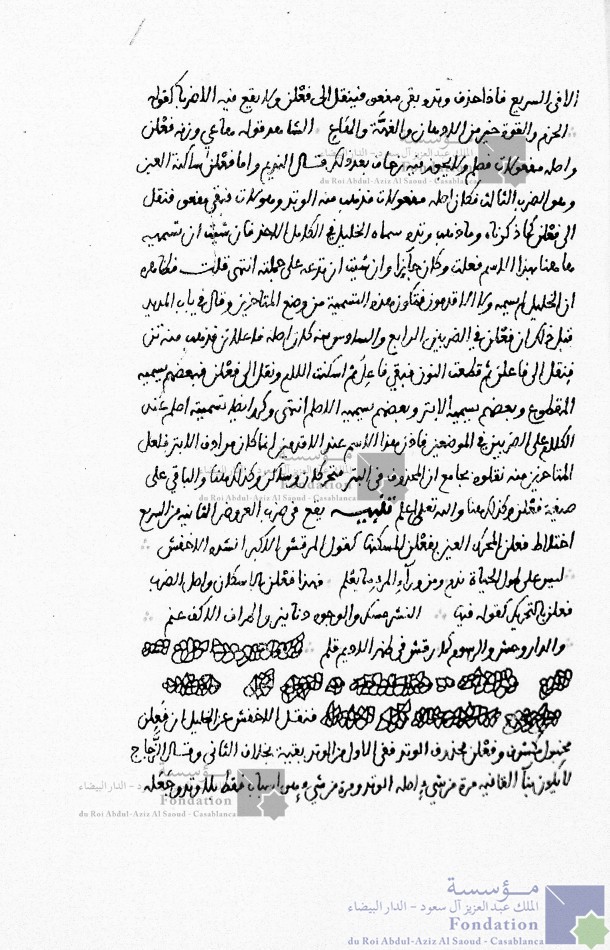 الا في السريع فاذا حذف وتده بقي مفعو فينقل الى فعْلن ولا يقع فيه الا ضربا كقوله
الحزم والقوة خير من الادهان والفهّة والهاع الشاهد قوله هاعي وزنه فعْلن
واصله مفعولات قال النديم واما فعْلن ساكنة العين
وهو الضرب الثالث فكان اصله مفعولات فذهب منه الوتد وهو لات فبقي مفعو فنقل
الى فعْلن كما ذكرناه وما ذهب وتده سماه الخليل في الكامل الاحذ فان شئت ان تسميه
هاهنا بهذا الاسم فعلت وكان جائزا وان شئت ان تدعه على جملته انتهى قلت فظاهره
ان الخليل لم يسمه ولا الاقدمون فتكون هذه التسمية من وضع المتاخرين وقال في باب المديد
قبل ذلك ان فعْلن في الضربين الرابع والسادس منه كان اصله فاعلاتن فذهب منه تن
فنقل الى فاعلن ثم قطعت النون فبقي فاعل ثم اسكنت اللام ونقل الى فعْلن فبعضهم يسميه
المقطوع وبعضهم يسميه الابتر وبعضهم يسميه الاصلم انتهى
الكلام على الضربين في الموضعين فاذن هذا الاسم عند الاقدمين انما كان مرادف الابتر فلعل
المتاخرين منه نقلوه بجامع ان المحذوف في البتر متحركان وساكن وكذلك هنا والباقي على
صيغة فعْلن وكذلك هنا والله تعلى اعلم تنبيه يقع في ضرب العروض الثانية من السريع
اختلاط فعلن المحرك العين بفعْلن المسكنها كقول المرقش الاكبر انشده الاخفش
ليس على طول الحياة ندم ومن وراء المرء ما يعلم فهذا فعْلن بالاسكان واصل الضرب
فعلن بالتحريك كقوله فيها النشر مسك والوجوه دنانير واطراف الاكف عنم
والدار وحش والرسوم كما رقش في ظهر الاديم قلم
فنقل الاخفش عن الخليل ان فعِلن
مخبول مكشوف وفعْلن محذوف الوتد ففي الاول من الوتد بقية بخلاف الثاني وقال الزجاج
لا يكون بناء القافية مرة من شيء اصله الوتد ومرة من شيء ليس اسباب فقط بلا وتد وجعله
مؤسسة
الملك عبد العزيز آل سعود - الدار البيضاء
Fondation
du Roi Abdul-Aziz Al Saoud - Casablanca